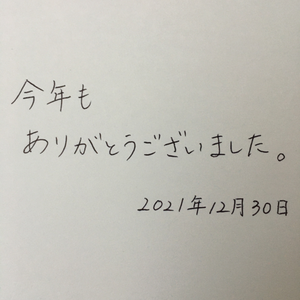 今年も
ありがとうございました。
2021年12月30日